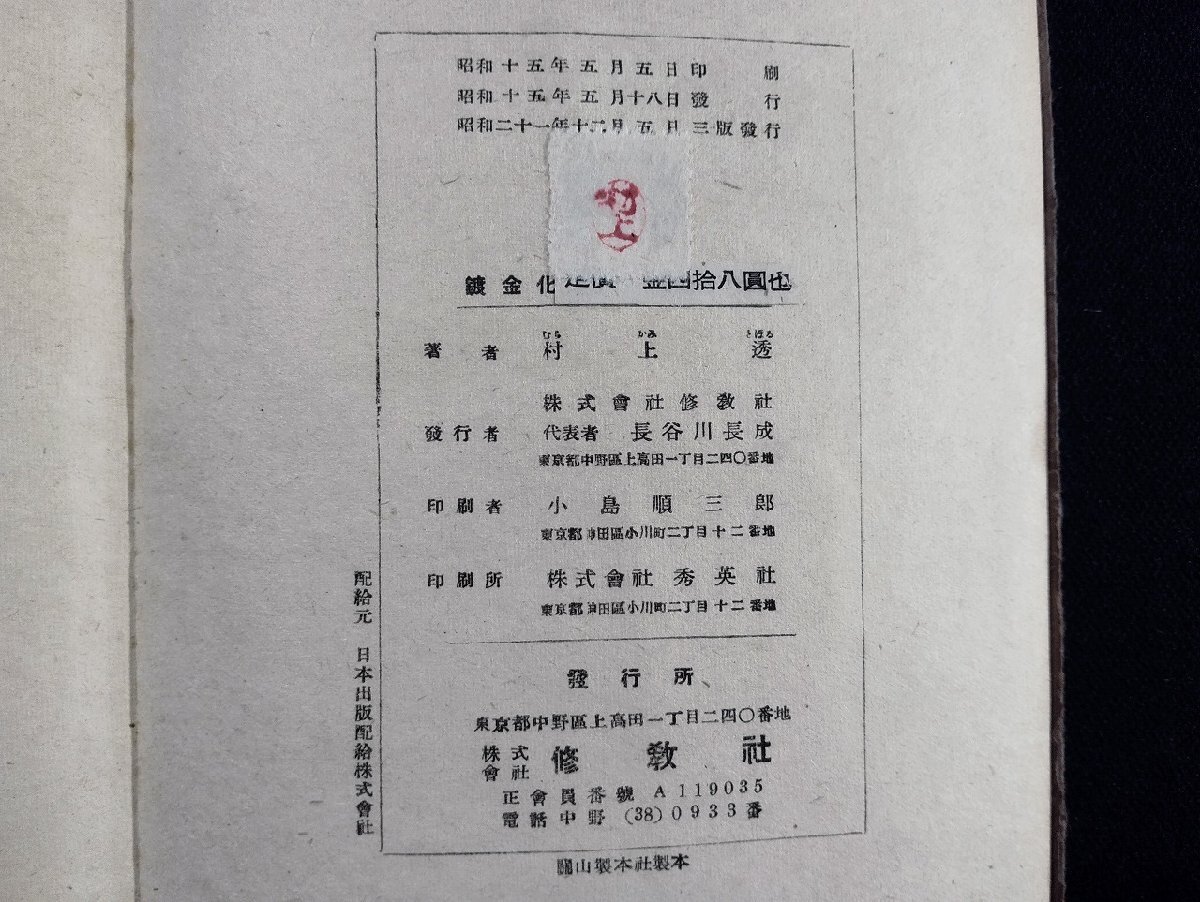 昭和十五年五月五日印刷
昭和十五年五月十八日發行
昭和二十一年十二月五日三版發行
村上
鍍金化
定價 金四拾八圓也
むら かみ とほる
著者 村上透
株式會社修敎社
發行者 代表者 長谷川長成
東京都中野區上高田一丁目二四〇番地
印刷者 小島順三郎
東京都神田區小川町二丁目十二番地
印刷所 株式會社秀英社
東京都神田區小川町二丁目十二番地
發行所
東京都中野區上高田一丁目二四〇番地
株式會社 修敎社
正會員番號 A119035
電話中野(38)0933番
配給元 日本出版配給株式會社
山製本社製本